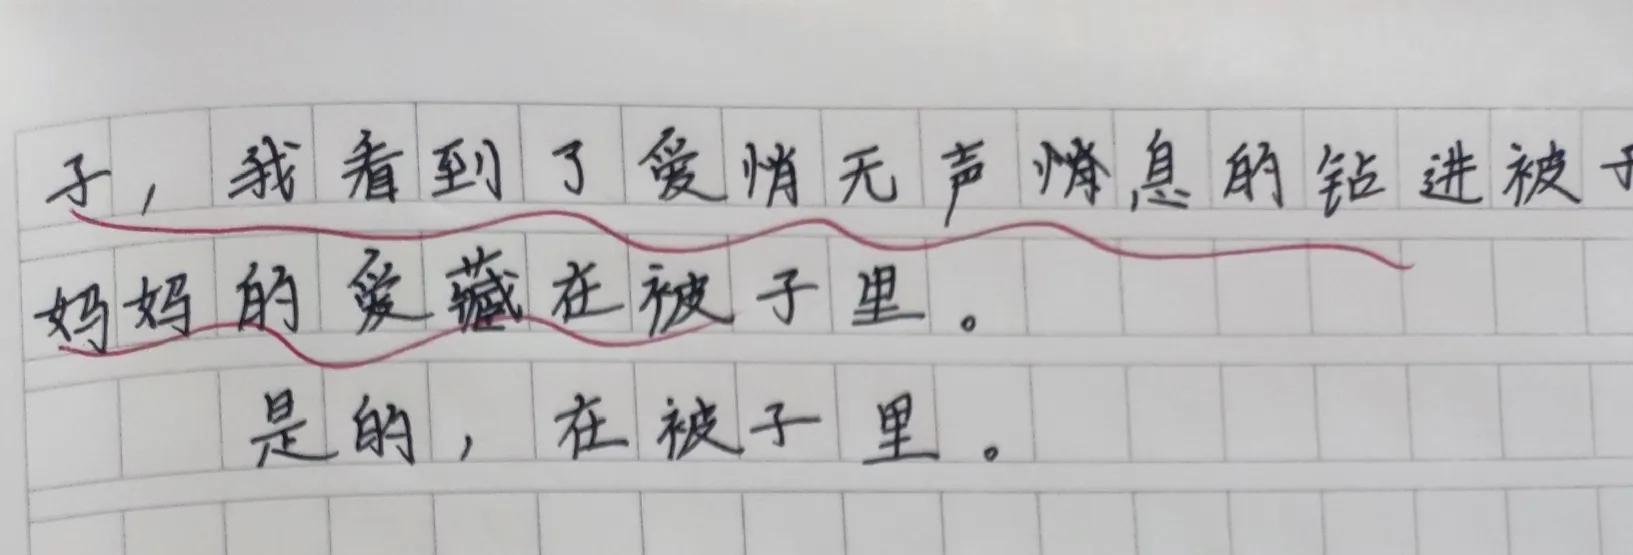 子，我看到了爱悄无声悄息的钻进被子
妈妈的爱藏在被子里。
是的，在被子里。